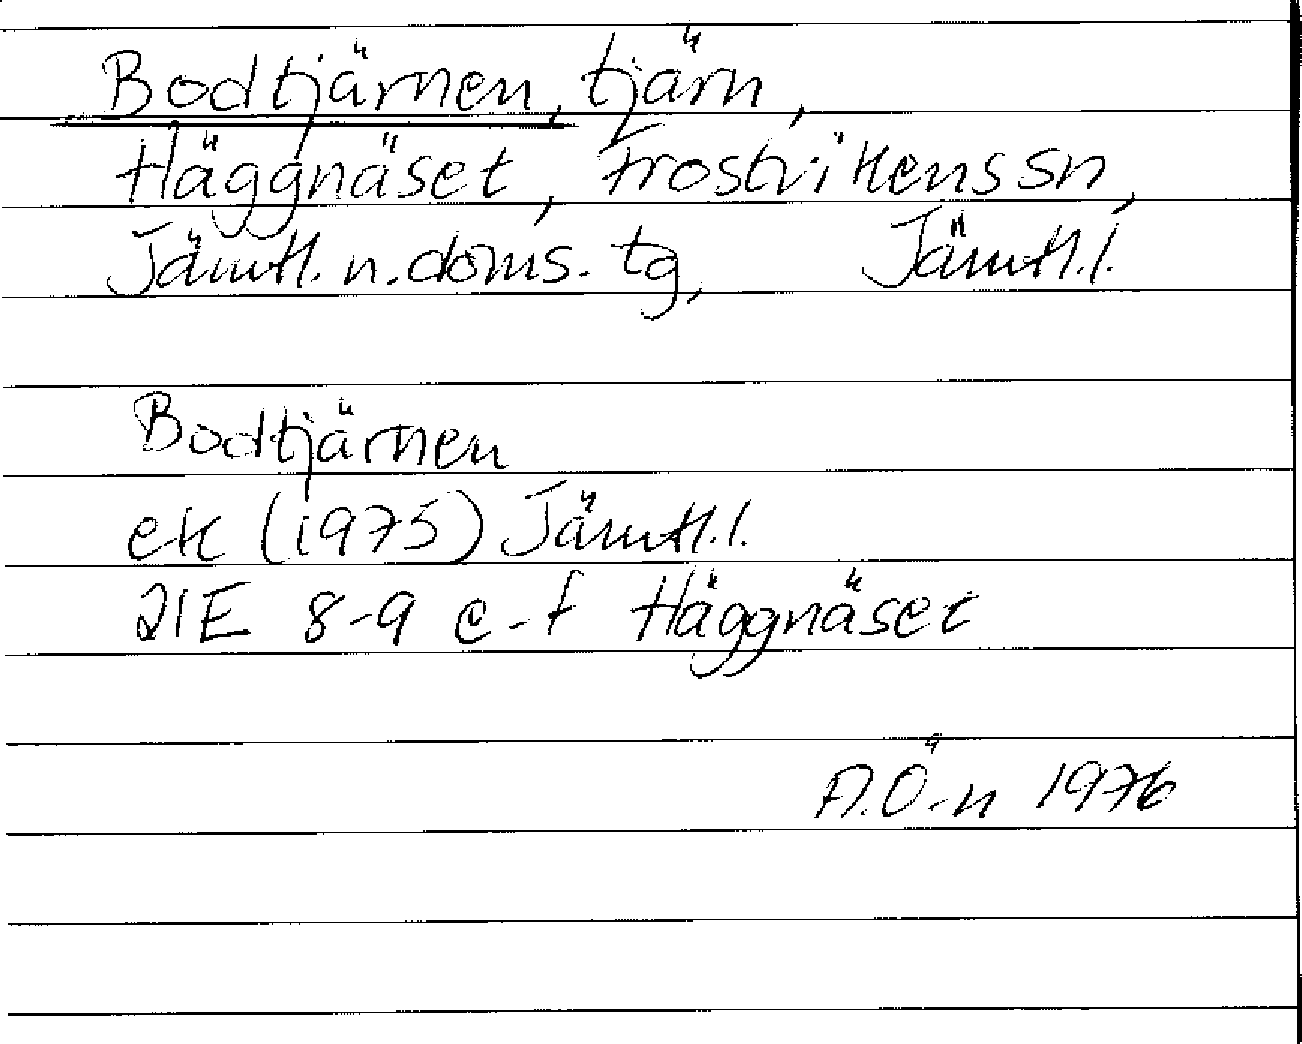 Bodtjärnen, tjärn,
Häggnäset, Frostvikens sn,
Jämtl. n. doms. tg, Jämtl. l.
Bodtjärnen
ek (1975) Jämtl. l.
21E 8-9 e-f Häggnäset
A. Ö-n 1976